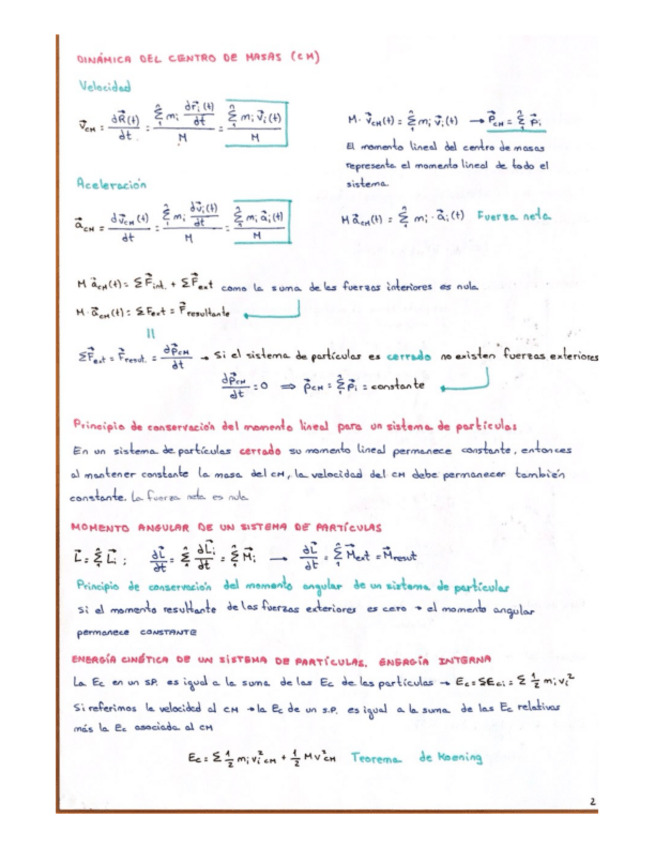 DINÁMICA DEL CENTRO DE MASAS (CM)
Velocidad
v⃗CM = dR⃗(t)/dt = Σ₁ⁿ mᵢ dr⃗ᵢ(t)/dt / M = Σ₁ⁿ mᵢ v⃗ᵢ(t) / M
M · v⃗CM(t) = Σ₁ⁿ mᵢ v⃗ᵢ(t) → P⃗CM = Σ₁ⁿ p⃗ᵢ
El momento lineal del centro de masas
representa el momento lineal de todo el
sistema.
Aceleración
a⃗CM = dv⃗CM(t)/dt = Σ₁ⁿ mᵢ dv⃗ᵢ(t)/dt / M = Σ₁ⁿ mᵢ a⃗ᵢ(t) / M
M a⃗CM(t) = Σ₁ⁿ mᵢ · a⃗ᵢ(t) Fuerza neta
M a⃗CM(t) = ΣF⃗int. + ΣF⃗ext como la suma de las fuerzas interiores es nula
M · a⃗CM(t) = ΣFext = F⃗resultante
||
ΣF⃗ext = F⃗result. = dp⃗CM/dt → Si el sistema de partículas es cerrado no existen fuerzas exteriores
dp⃗CM/dt = 0 ⟹ p⃗CM = Σ₁ⁿ p⃗ᵢ = constante
Principio de conservación del momento lineal para un sistema de partículas
En un sistema de partículas cerrado su momento lineal permanece constante, entonces
al mantener constante la masa del CM, la velocidad del CM debe permanecer también
constante. La fuerza neta es nula.
MOMENTO ANGULAR DE UN SISTEMA DE PARTÍCULAS
L⃗ = Σ₁ⁿ L⃗ᵢ ; dL⃗/dt = Σ₁ⁿ dL⃗ᵢ/dt = Σ₁ⁿ M⃗ᵢ → dL⃗/dt = Σ₁ⁿ M⃗ext = M⃗result
Principio de conservación del momento angular de un sistema de partículas
Si el momento resultante de las fuerzas exteriores es cero → el momento angular
permanece CONSTANTE
ENERGÍA CINÉTICA DE UN SISTEMA DE PARTÍCULAS. ENERGÍA INTERNA
La Ec en un SP. es igual a la suma de las Ec de las partículas → Ec = ΣEci = Σ ½ mᵢvᵢ²
Si referimos la velocidad al CM → la Ec de un s.p. es igual a la suma de las Ec relativas
más la Ec asociada al CM
Ec = Σ ½ mᵢ vᵢ²CM + ½ M v²CM Teorema de Koening
2